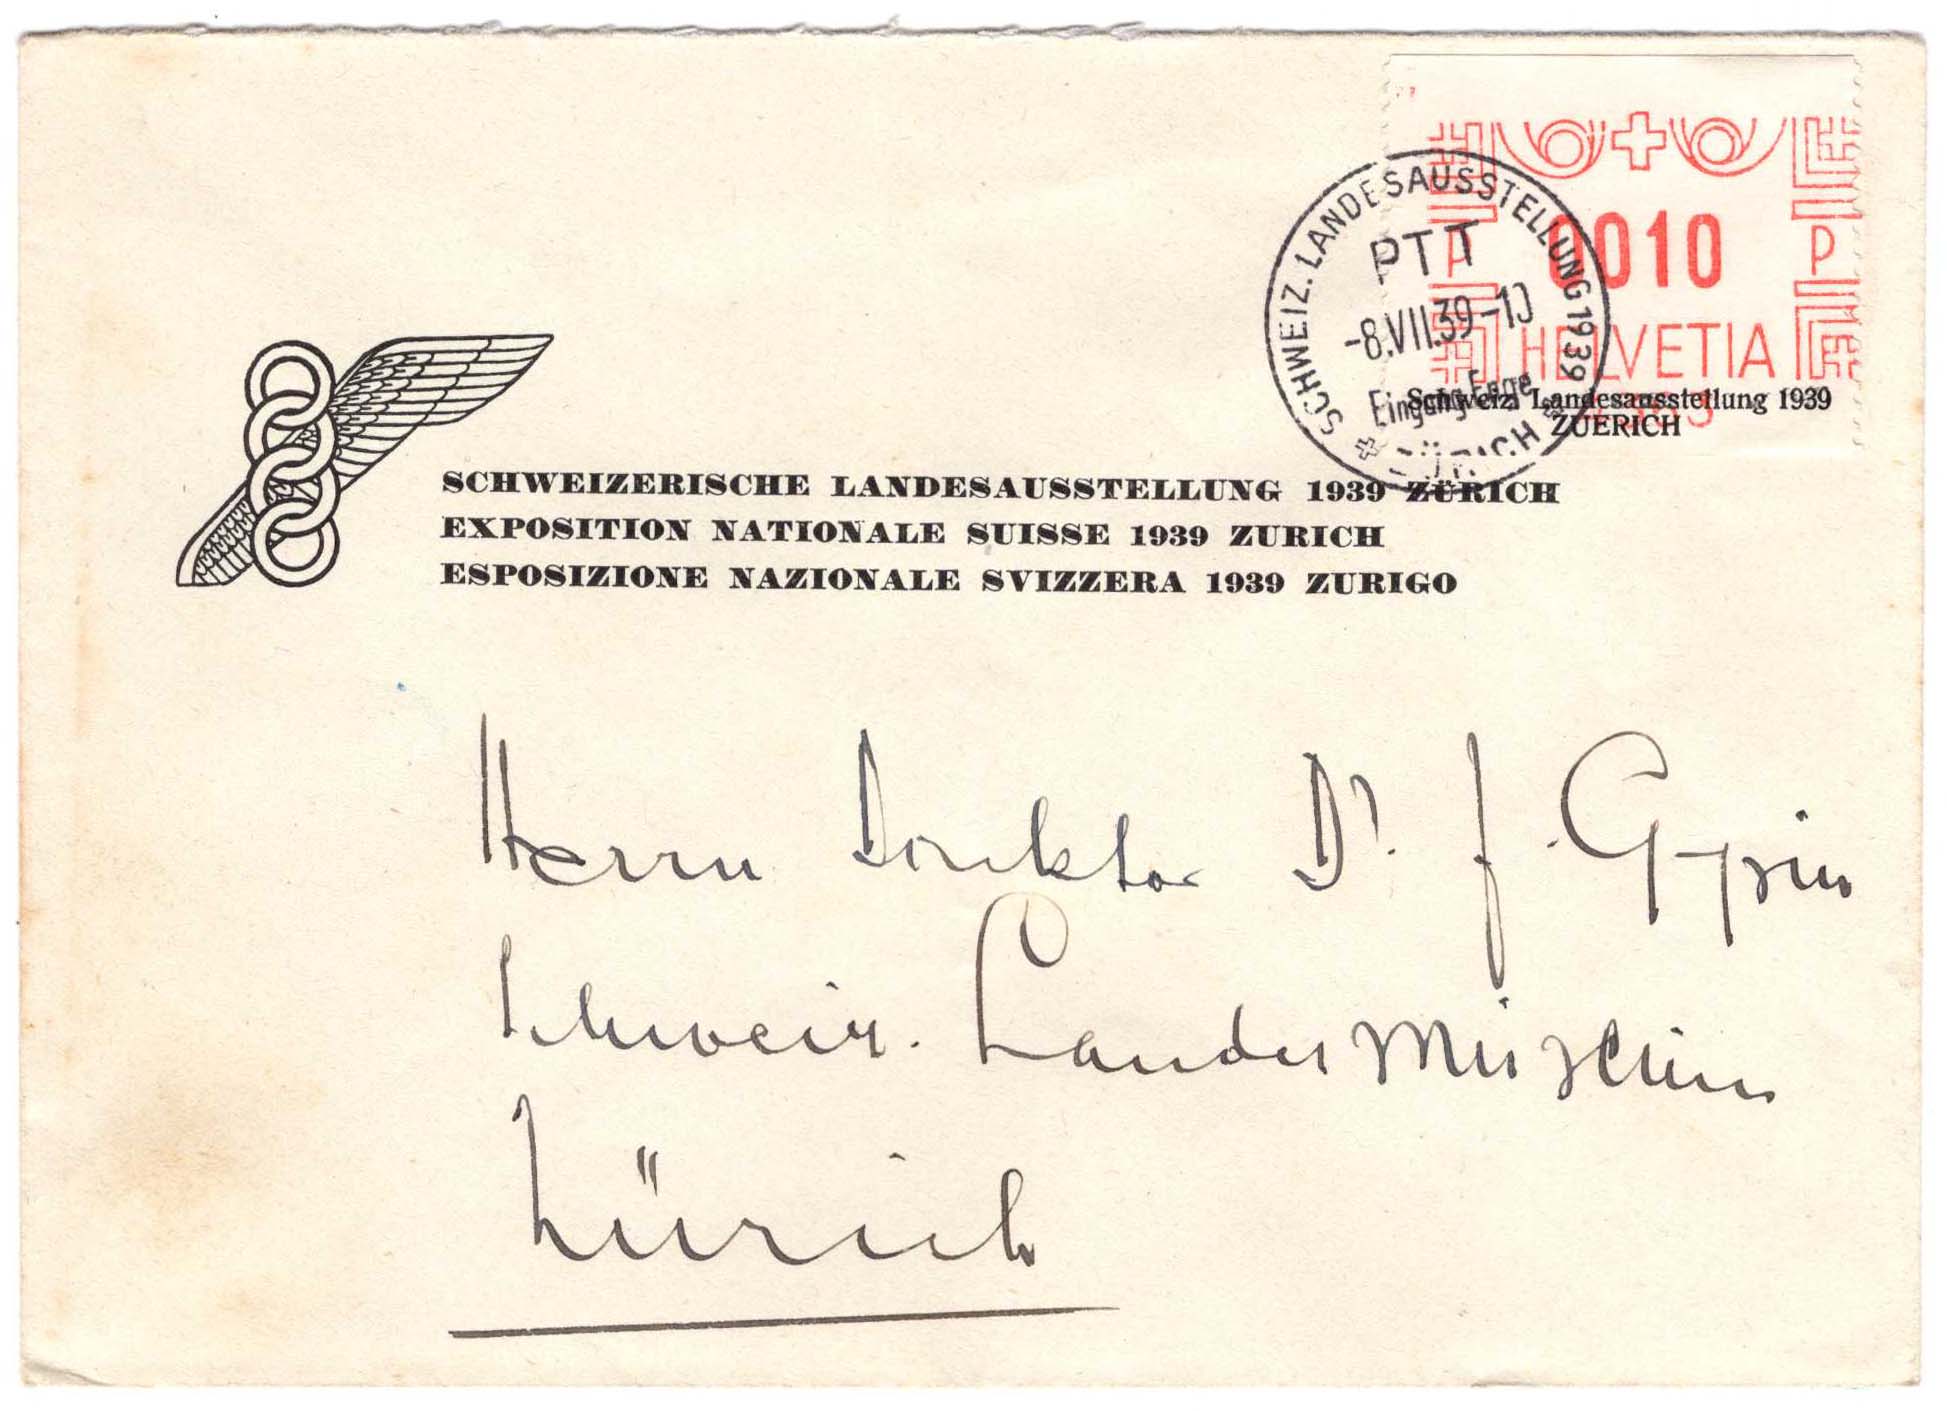 P 0010 P
HELVETIA
Schweiz. Landesausstellung 1939
ZUERICH
SCHWEIZ. LANDESAUSSTELLUNG 1939
PTT
-8.VII.39-10
Eingang Enge
ZÜRICH
SCHWEIZERISCHE LANDESAUSSTELLUNG 1939 ZÜRICH
EXPOSITION NATIONALE SUISSE 1939 ZURICH
ESPOSIZIONE NAZIONALE SVIZZERA 1939 ZURIGO
Herrn Direktor Dr. F. Gysin
Schweiz. Landesmuseum
Zürich